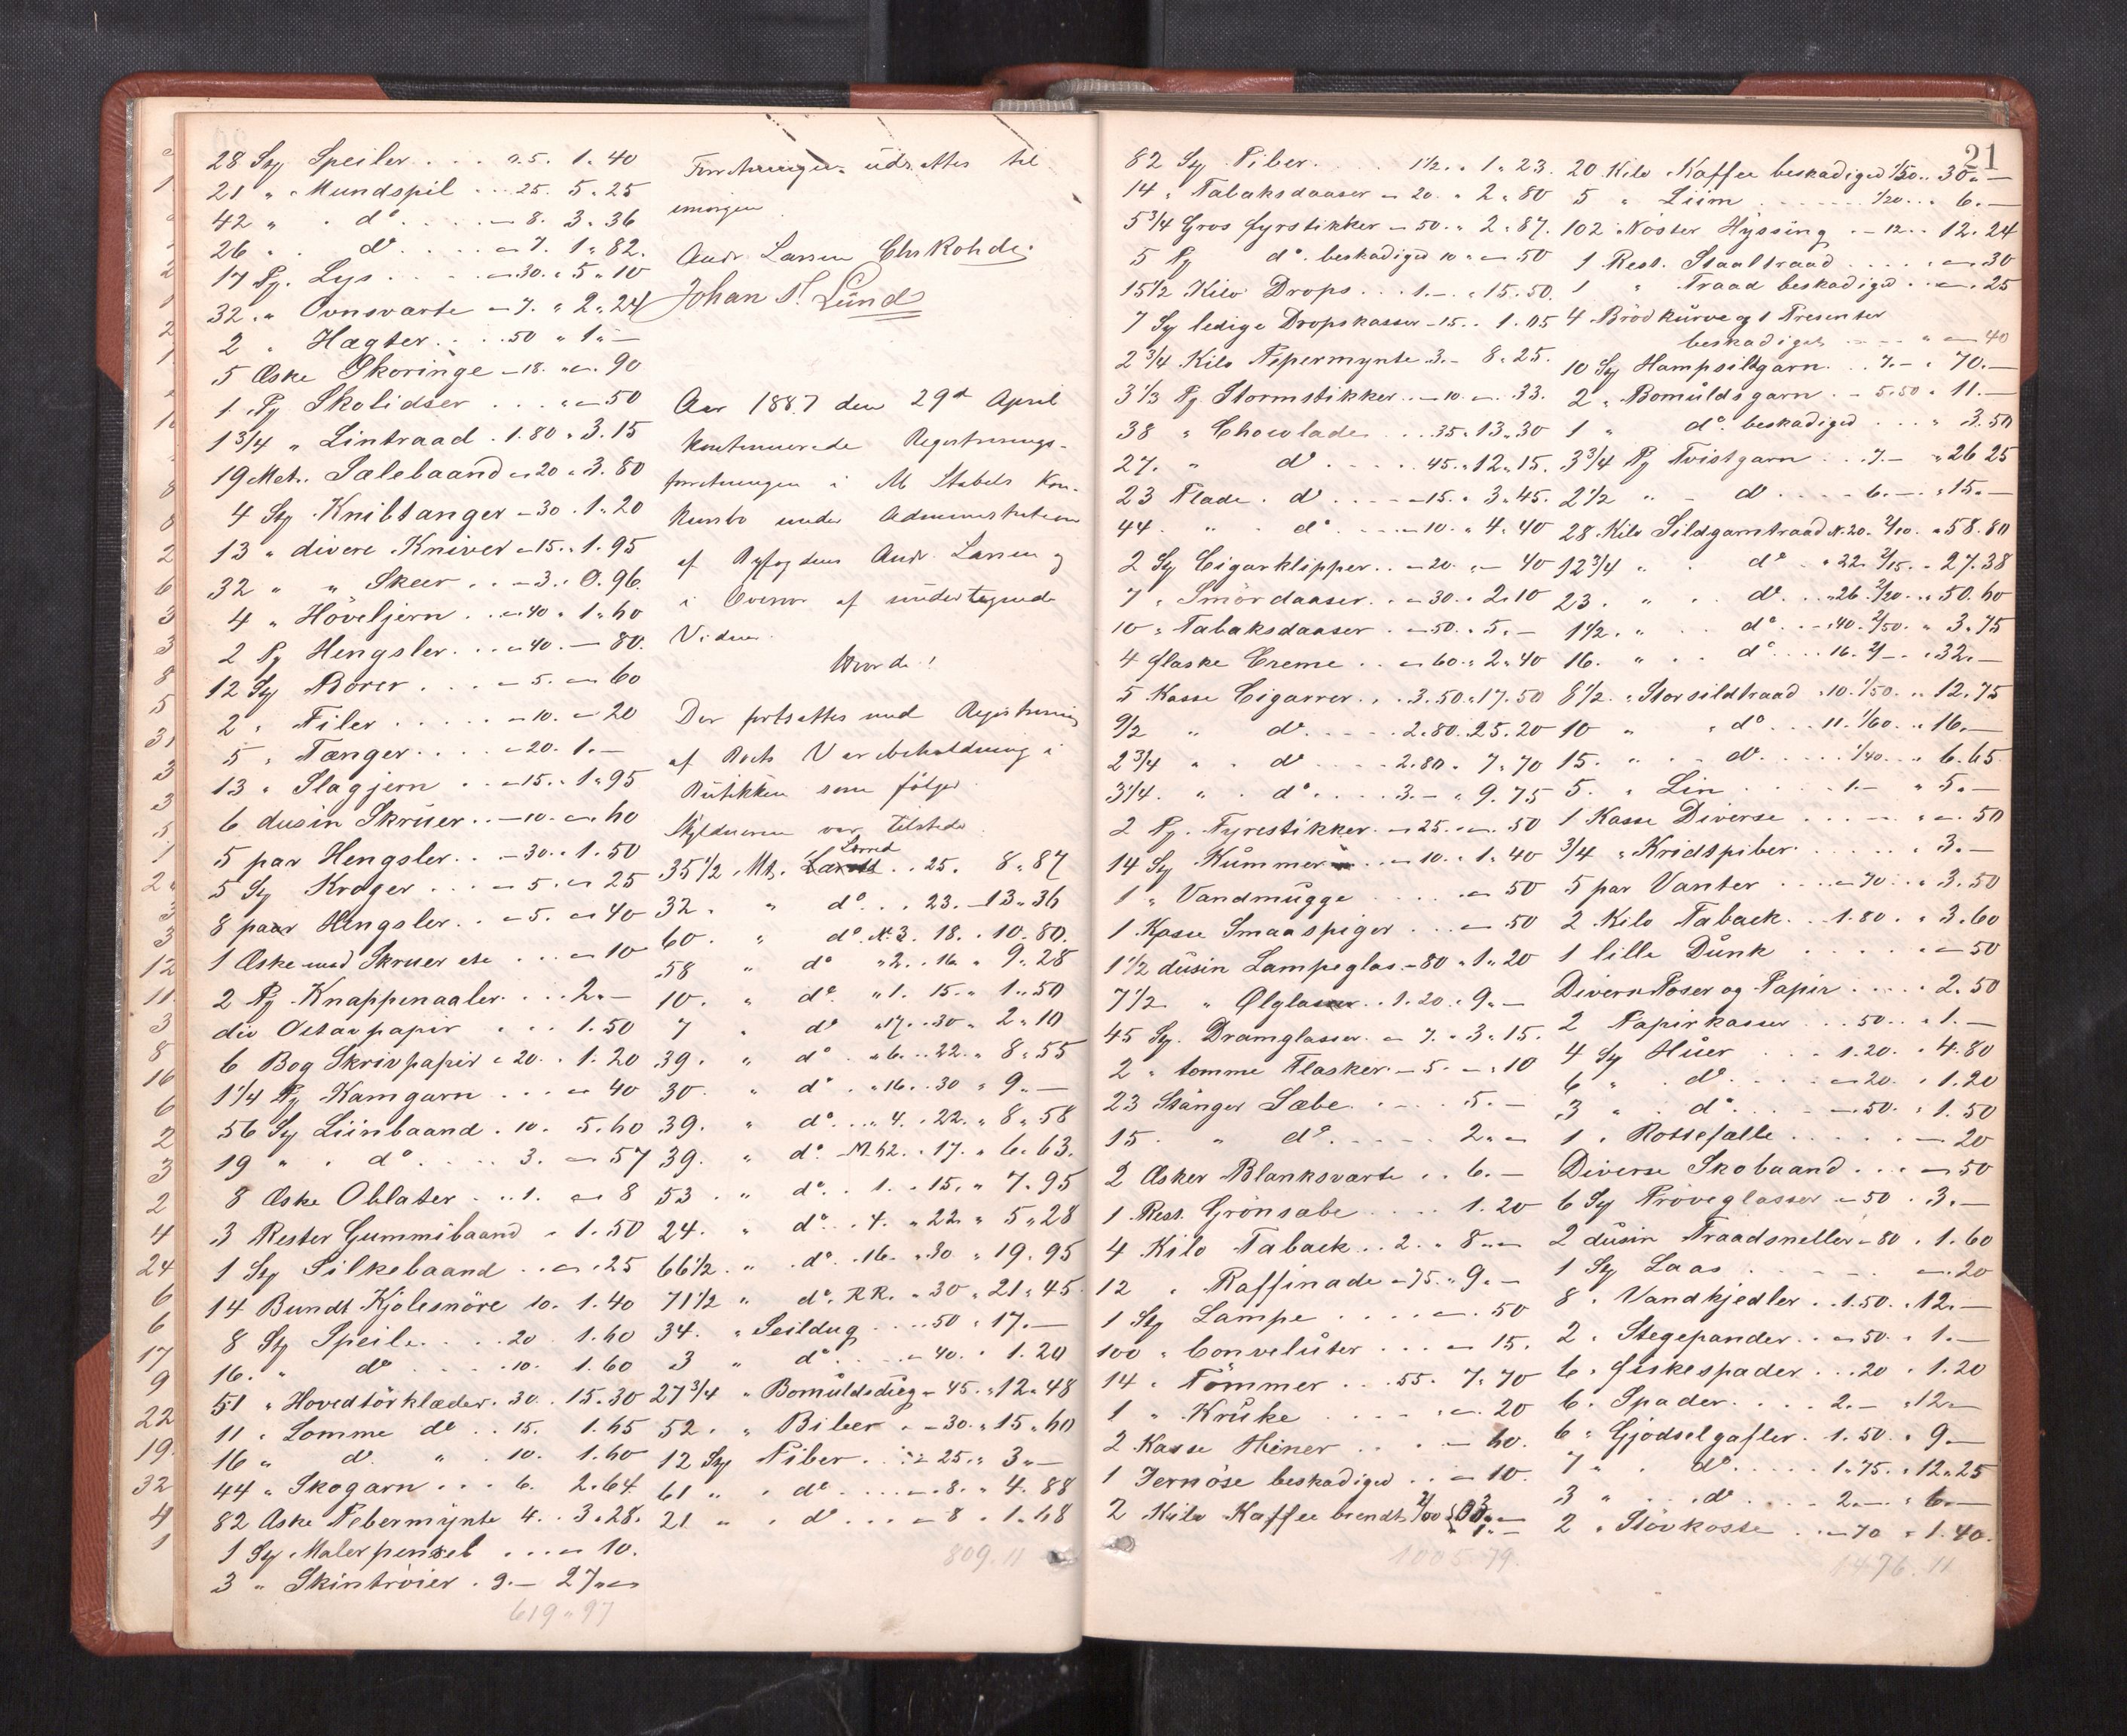 28 Stk Speiler . . . . " 5. 1. 40
21 " Mundspil . . . 25. 5. 25
42 " " do . . . . – 8. 3. 36
26 " do . . . . – 7. 1. 82.
17 Pk. Lys . . . . – 30. " 5. 10
32 " Ovnsværte – 7. " 2. 24
2 " Hægter . . . . 50 " 1. –
5 Æske Skoringe – 18. " – 90
1 Pk Skolidser . . . " – 50
1 3/4 " Lintraad . 1.80 " 3.15
19 Met. Sælebaand – 20 " 3.80
4 Stk Knibtanger – 30 . 1. 20
13 " divere Kniver – 15 " 1. 95
32 " " Skeer . . – 3. . 0.96.
4 " Høveljern . . – 40 " 1. 60
2 Pk Hengsler . . – 40 . – 80.
12 Stk Borer . . . – 5. – 60
2 " Filer . . . . . – 10. – 20
5 " Tænger . . . . – 20. 1. –
13 " Slagjern . . – 15. . 1. 95
6 dusin Skruer . . – 10. – 60
5 par Hengsler . . – 30. . 1. 50
5 Stk Kroger . . . – 5. – 25
8 paar Hengsler . . – 5. – 40
1 Æske med Skruer etc . . . – 10
2 Pk Knappenaaler . . . 2. –
div Octav papir . . . 1. 50
6 Bog Skrivpapir – 20 . . 1. 20
1 1/4 Pk Kamgarn . . . – 40
56 Stk Liinbaand . 10. 5. 60
19 " " do . . . . 3. – 57
8 Æske Oblater . . . 1. – 8
3 Rester Gummibaand . 1. 50
1 Stk Silkebaand . . – 25
14 Bundt Kjolesnöre 10. 1. 40
8 Stk Speile . . . . 20 1. 60
16 . " do . . . . 10. 1. 60
51 " Hovedtörklæder . 30. . 15. 30
11 " Lomme do . . 15. 1. 65
16 " do " . 10. 1. 60
44 " Skogarn . . . 6. 2. 64
82 Æske Pebermynte 4. . 3. 28.
1 Stk Malerpensel . . . – 10.
3 " Skintröier . 9. – 27 " –
619 " 97
Forretningen udsættes til
imorgen
Andr Larsen Chr Rohde
Johan S. Lund
Aar 1887 den 29de April
kontinuerede Registrerings-
forretningen i M Stabels Kon-
kursbo under Administration
af Byfogden Andr. Larsen og
i Overvær af undertegnede
Vidner.
Hvorda!
Der fortsattes med Registrering
af Boets Varebeholdning i
Butikken som følger
Skyldneren var tilstede
35 1/2 Mt. Lærred . . 25. 8. 87
32 . " do . . . 23. – 13. 36
60 . " do N. 3. 18. . 10. 80.
58 " do " 2. . 16. " 9. 28
10. " do " 1. 15. " 1. 50
7 " do " 17. . 30 " 2. 10
39. " do . " 6. . . 22. " 8. 55
30. " do . " 16. . 30 " 9. –
39. " do . . " 4. . 22. " 8. 58
39. " do M. 62. . 17. " 6. 63.
53 . " do . . 1. . 15. " 7. 95
24. " do . . . 4. " 22 " 5. 28
66 1/2 . " do . 16. . 30 " 19. 95
71 1/2 " do . RR. " 30 " 21. 45
34. " Seildug . . . . 50 . 17. –
3 " do . . . . – 40. . 1. 20
27 3/4 " Bomuldsdug – 45. " 12. 48
52. " Biber . . – 30. " 15. 60
12 Stk Piber . . . – 25. " 3. –
61 " " do . . . . – 8. " 4. 88
21 " " do . . . – 8 . 1. 68
809. 11
21
82 Stk Piber . . . . 1 1/2. . 1. 23.
14 " Tabaksdaaser – 20. " 2. 80
5 3/4 Gros fyrstikker – 50. " 2. 87.
5 Pk do beskadiged 10 " – 50
15 1/2 Kilo Drops . . . 1. – " 15. 50.
7 Stk ledige Dropskasser – 15. . 1. 05
2 3/4 Kilo Pepermynte 3. – 8. 25.
3 1/3 Pk Stormstikker . . – 10. – . 33.
38 " Chocolade . . . 35. 13. 30
27. " do . . . . 45. " 12. 15.
23 Plade . do . . . . – 15. . 3. 45.
44. " do . . . . – 10. " 4. 40
2 Stk Cigarklipper . . – 20. " – 40
7 " Smördaaser . . – 30. . 2. 10
10 " Tabaksdaaser . – 50. . 5. –
4 flaske Creme . . – 60. " 2. 40
5 Kasse Cigarrer . . . 3. 50. " 17. 50
9/2 " do . . . . . 2. 80. 25. 20
2 3/4 " do . . . . 2. 80. . 7. 70
3 1/4. " do . . . . 3. – " 9. 75
2 Pk. Fyrestikker . – 25. " – 50
14 Stk Kummer . . – 10. . 1. 40
1 " Vandmugge . . . . – 50
1 Kasse Smaaspiger . . – 50
1 1/2 dusin Lampeglas . – 80 " 1. 20
7 1/2 " Ølglasser . . 1. 20 . 9. –
45 Stk. Dramglasser . – 7. . 3. 15.
2 " tomme Flasker . – 5. – " 10
23 Stänger Sæbe . . . . 5. –
15. " do . . . . . 2. –
2 Æsker Blanksværte . . 6. –
1 Rest. Grönsæbe . . . . 1. 20
4 Kilo Taback . . 2. . 8. –
12 " Raffinade – 75. " 9. –
1 Stk Lampe . . . . – 50
100 " Conveluter . . . – 15.
14 " Tömmer . . . 55. 7. 70
1 " Kruke . . . . . – 20
2 Kasse Hiner . . . – 60.
1 Jernöse beskadiged . . – 10.
2 Kilo Kaffee brendt 2/00
1005. 79.
20 Kilo Kaffee beskadiged 1/50 . . 30. –
5 " Liim . . . . . . 1/20 . . . 6. –
102 Nöster Hyssing . . – 12. . . 12. 24
1 Rest. Staaltraad . . . . " – 30
1 " Traad beskadiged . . – 25
4 Brödkurve og 1 Presenter
beskadiget . . . . " – 40
10 Stk Hampsildgarn . . 7. – . 70. –
2 " Bomuldsgarn . – 5. 50 " 11. –
1 " do beskadiged . . . " 3. 50
3 3/4 Pk Tvistgarn . . . 7. – " 26 25
2 1/2 " " do . . . . 6. – . " 15. –
28 Kilo Sildgarntraad N. 20. 2/10. " 58. 80
12 3/4 " " do " 22. 2/15. . 27. 38
23. " " do . . " 26. 2/20. " . 50. 60
1 1/2. " " do . . – " 40. 2/50. " 3. 75
16. " " do . . . . 16. 2/– . " 32. –
8 1/2. " Storsildtraad " 10. 1/50. " . 12. 75
10 " " do . . . 11. 1/60. . . 16. –
15. " " do . . . . . 1/40 . . . 6. 65
5. " Lin . . . . . 1. – " 5. –
1 Kasse Diverse . . . – . " – 50
3/4 " Kridtpiber . . . . . . 3. –
5 par Vanter . . . – 70 . . . 3. 50
2 Kilo Taback . . 1. 80. . . 3. 60
1 lille Dunk . . . . . " – 50
Diverse Poser og Papir . . . . 2. 50
2 Papirkasser . . . 50. . . 1. –
4 Stk Huer . . . 1. 20. . 4. 80
6 " do . . . . – 20. . 1. 20
3 " do . . . . – 50. " 1. 50
1 " Rottefælle . . . . . – 20
Diverse Skobaand . . . – 50
6 Stk Pröveglasser – 50 . 3. –
2 dusin Traadsneller – 80 . 1. 60
1 Stk Laas . . . . . . – 20
8 " Vandkjedler . . 1. 50. . 12. –
2 " Stegepander . . – 50. . 1. –
6 " fiskespader . . . 20 . 1. 20
6 " Spader . . . . 2. – " 12. –
6 " Gjödselgafler . 1. 50. . 9. –
7 " do . . . . 1. 75. " 12. 25
3 " " do . . . . 2. – . " 6. –
2 " Stövkoste . . – 70 " 1. 40.
1476. 11